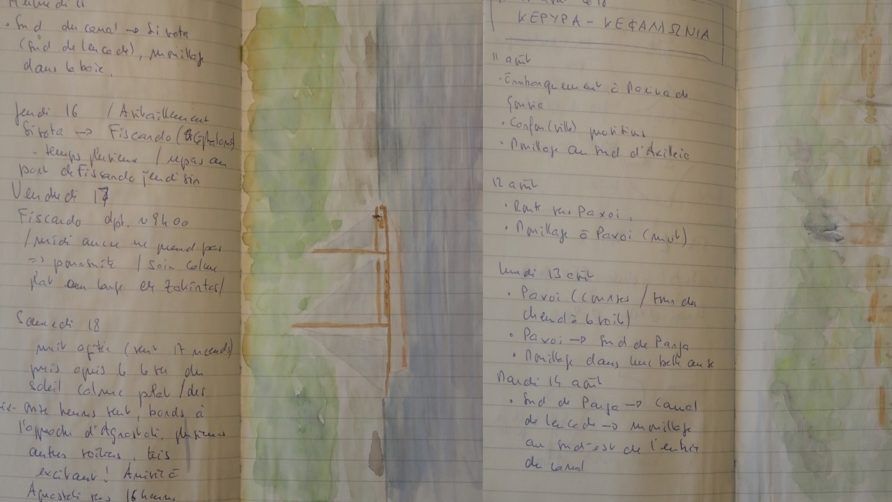 Mercredi
• Sud du canal → Sivota
(Sud de Leucade), mouillage
dans la baie.
Jeudi 16 / Avitaillement
Sivota → Fiscardo (Céphalonie)
- temps pluvieux / repas au
port de Fiscardo jeudi soir
Vendredi 17
Fiscardo dpt. ~ 9h00
/ midi ancre ne prend pas
=> poursuite / soir calme
plat au large de Zakintos /
Samedi 18
nuit agitée (vent 17 nœuds)
puis après le lever du
soleil calme plat / des
onze heures vent / bords à
l'approche d'Agnostoli, plusieurs
autres voiliers, très
excitant ! Arrivée à
Agnostoli vers 16 heures
ΚΕΡΥΡΑ - ΚΕΦΑΛΩΝΙΑ
11 août
• Embarquement à Marina de
Gouvia
• Corfou (ville) 
• Mouillage au sud d'Axileio
12 août
• Route vers Paxoi.
• Mouillage à Paxoi (nuit)
lundi 13 août
• Paxoi (courses / tour du
chenal à la voile)
• Paxoi → Sud de Parga
• Mouillage dans une belle anse
Mardi 14 août
• Sud de Parga → canal
de Leucade → mouillage
au sud-est de l'entrée
du canal